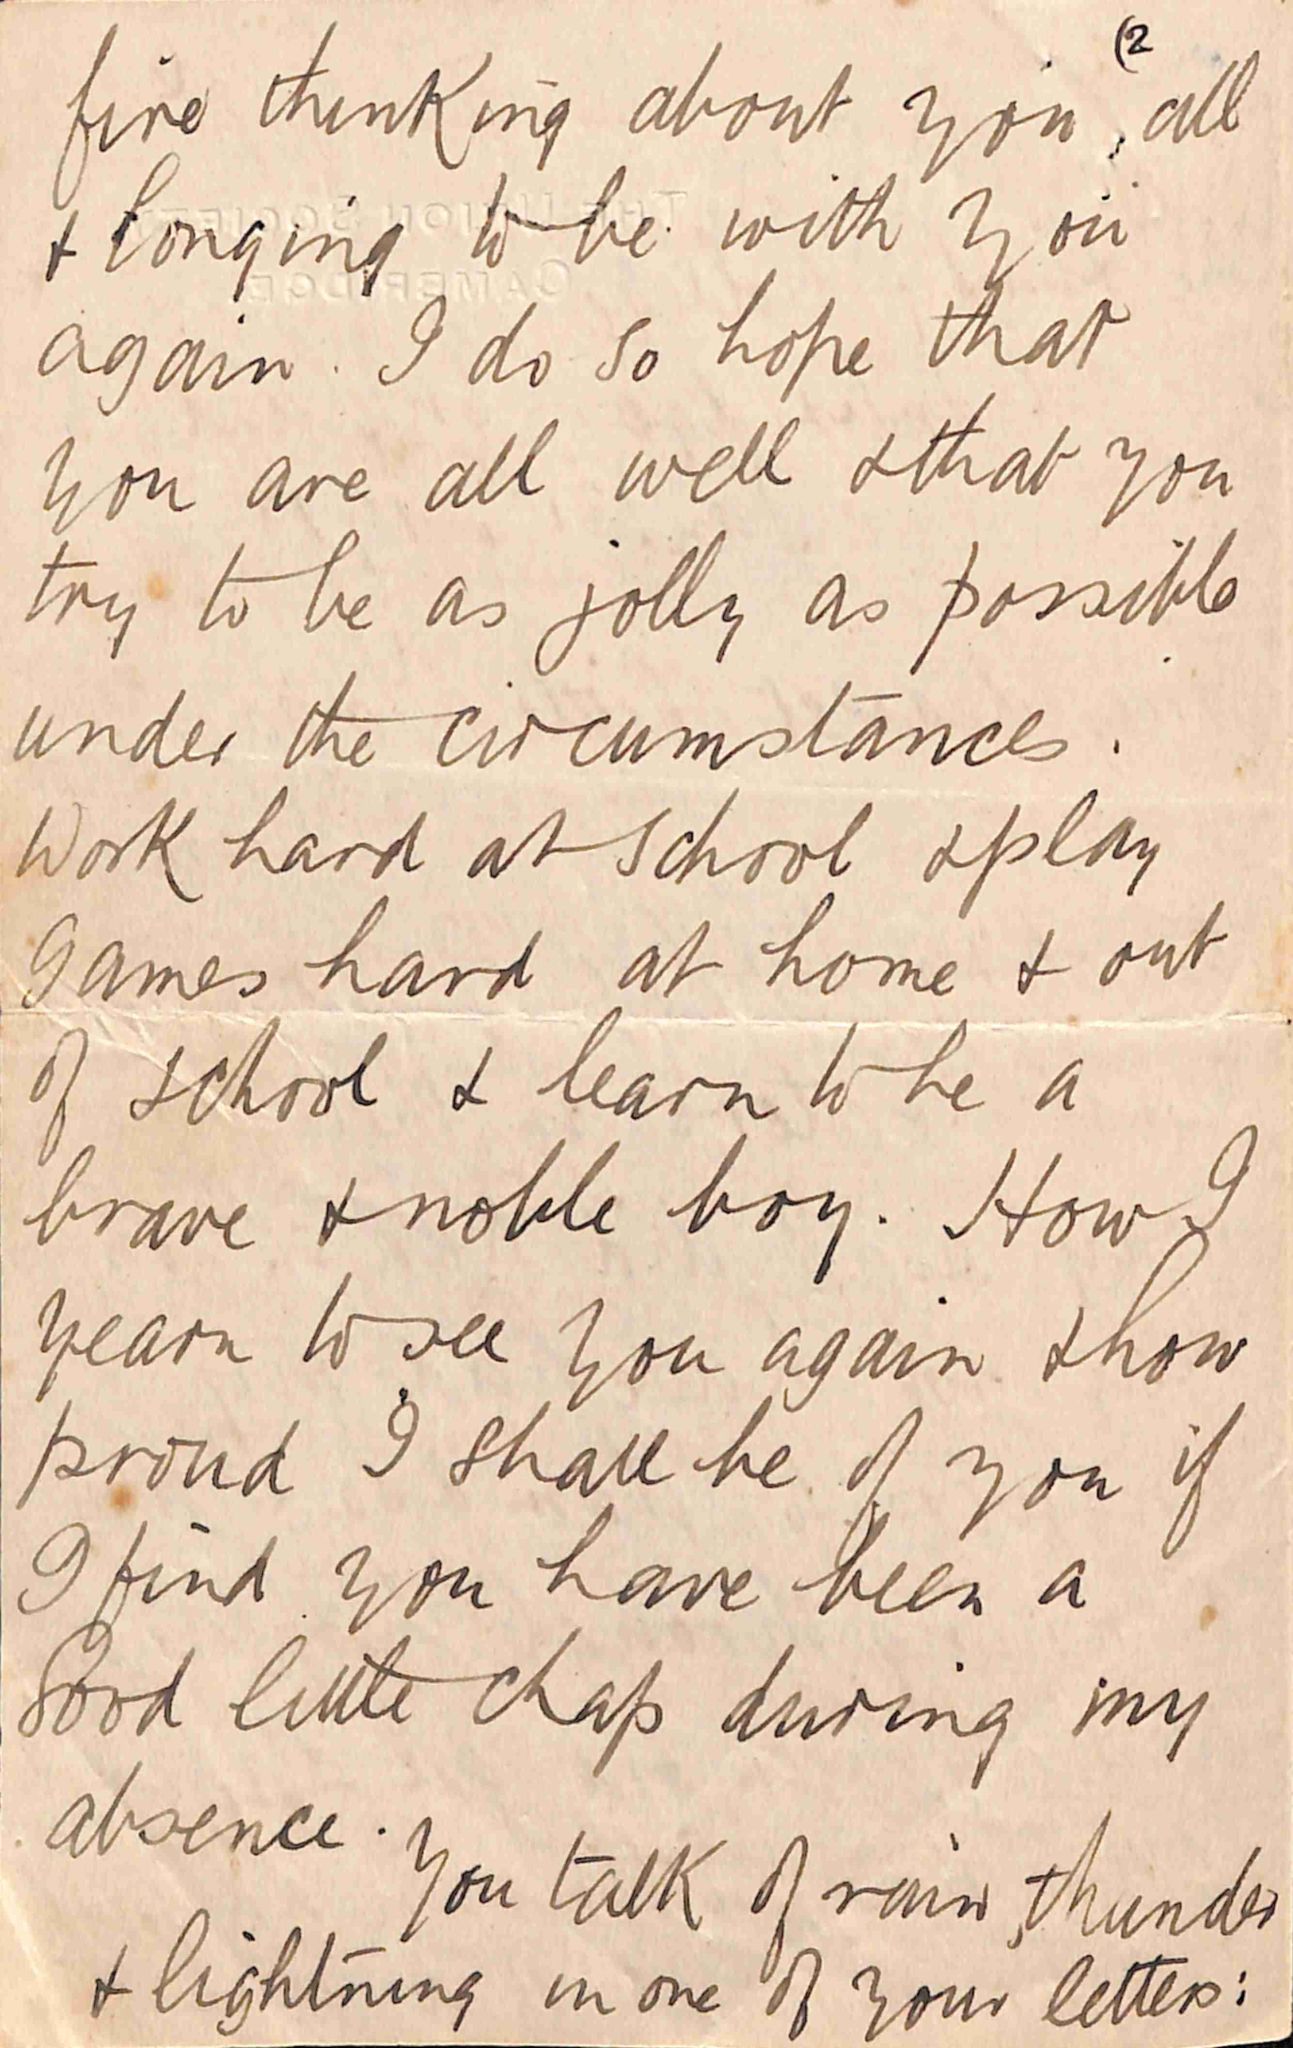 (2
fire thinking about you, all
& longing to be with you
again. I do so hope that
you are all well & that you
try to be as jolly as possible
under the circumstances.
Work hard at school & play
games hard at home & out
of school & learn to be a
brave & noble boy. How I
yearn to see you again & how
proud I shall be of you if
I find you have been a
good little chap during my
absence. You talk of rain, thunder
& lightning in one of your letters:
THE UNION SOCIETY
CAMBRIDGE